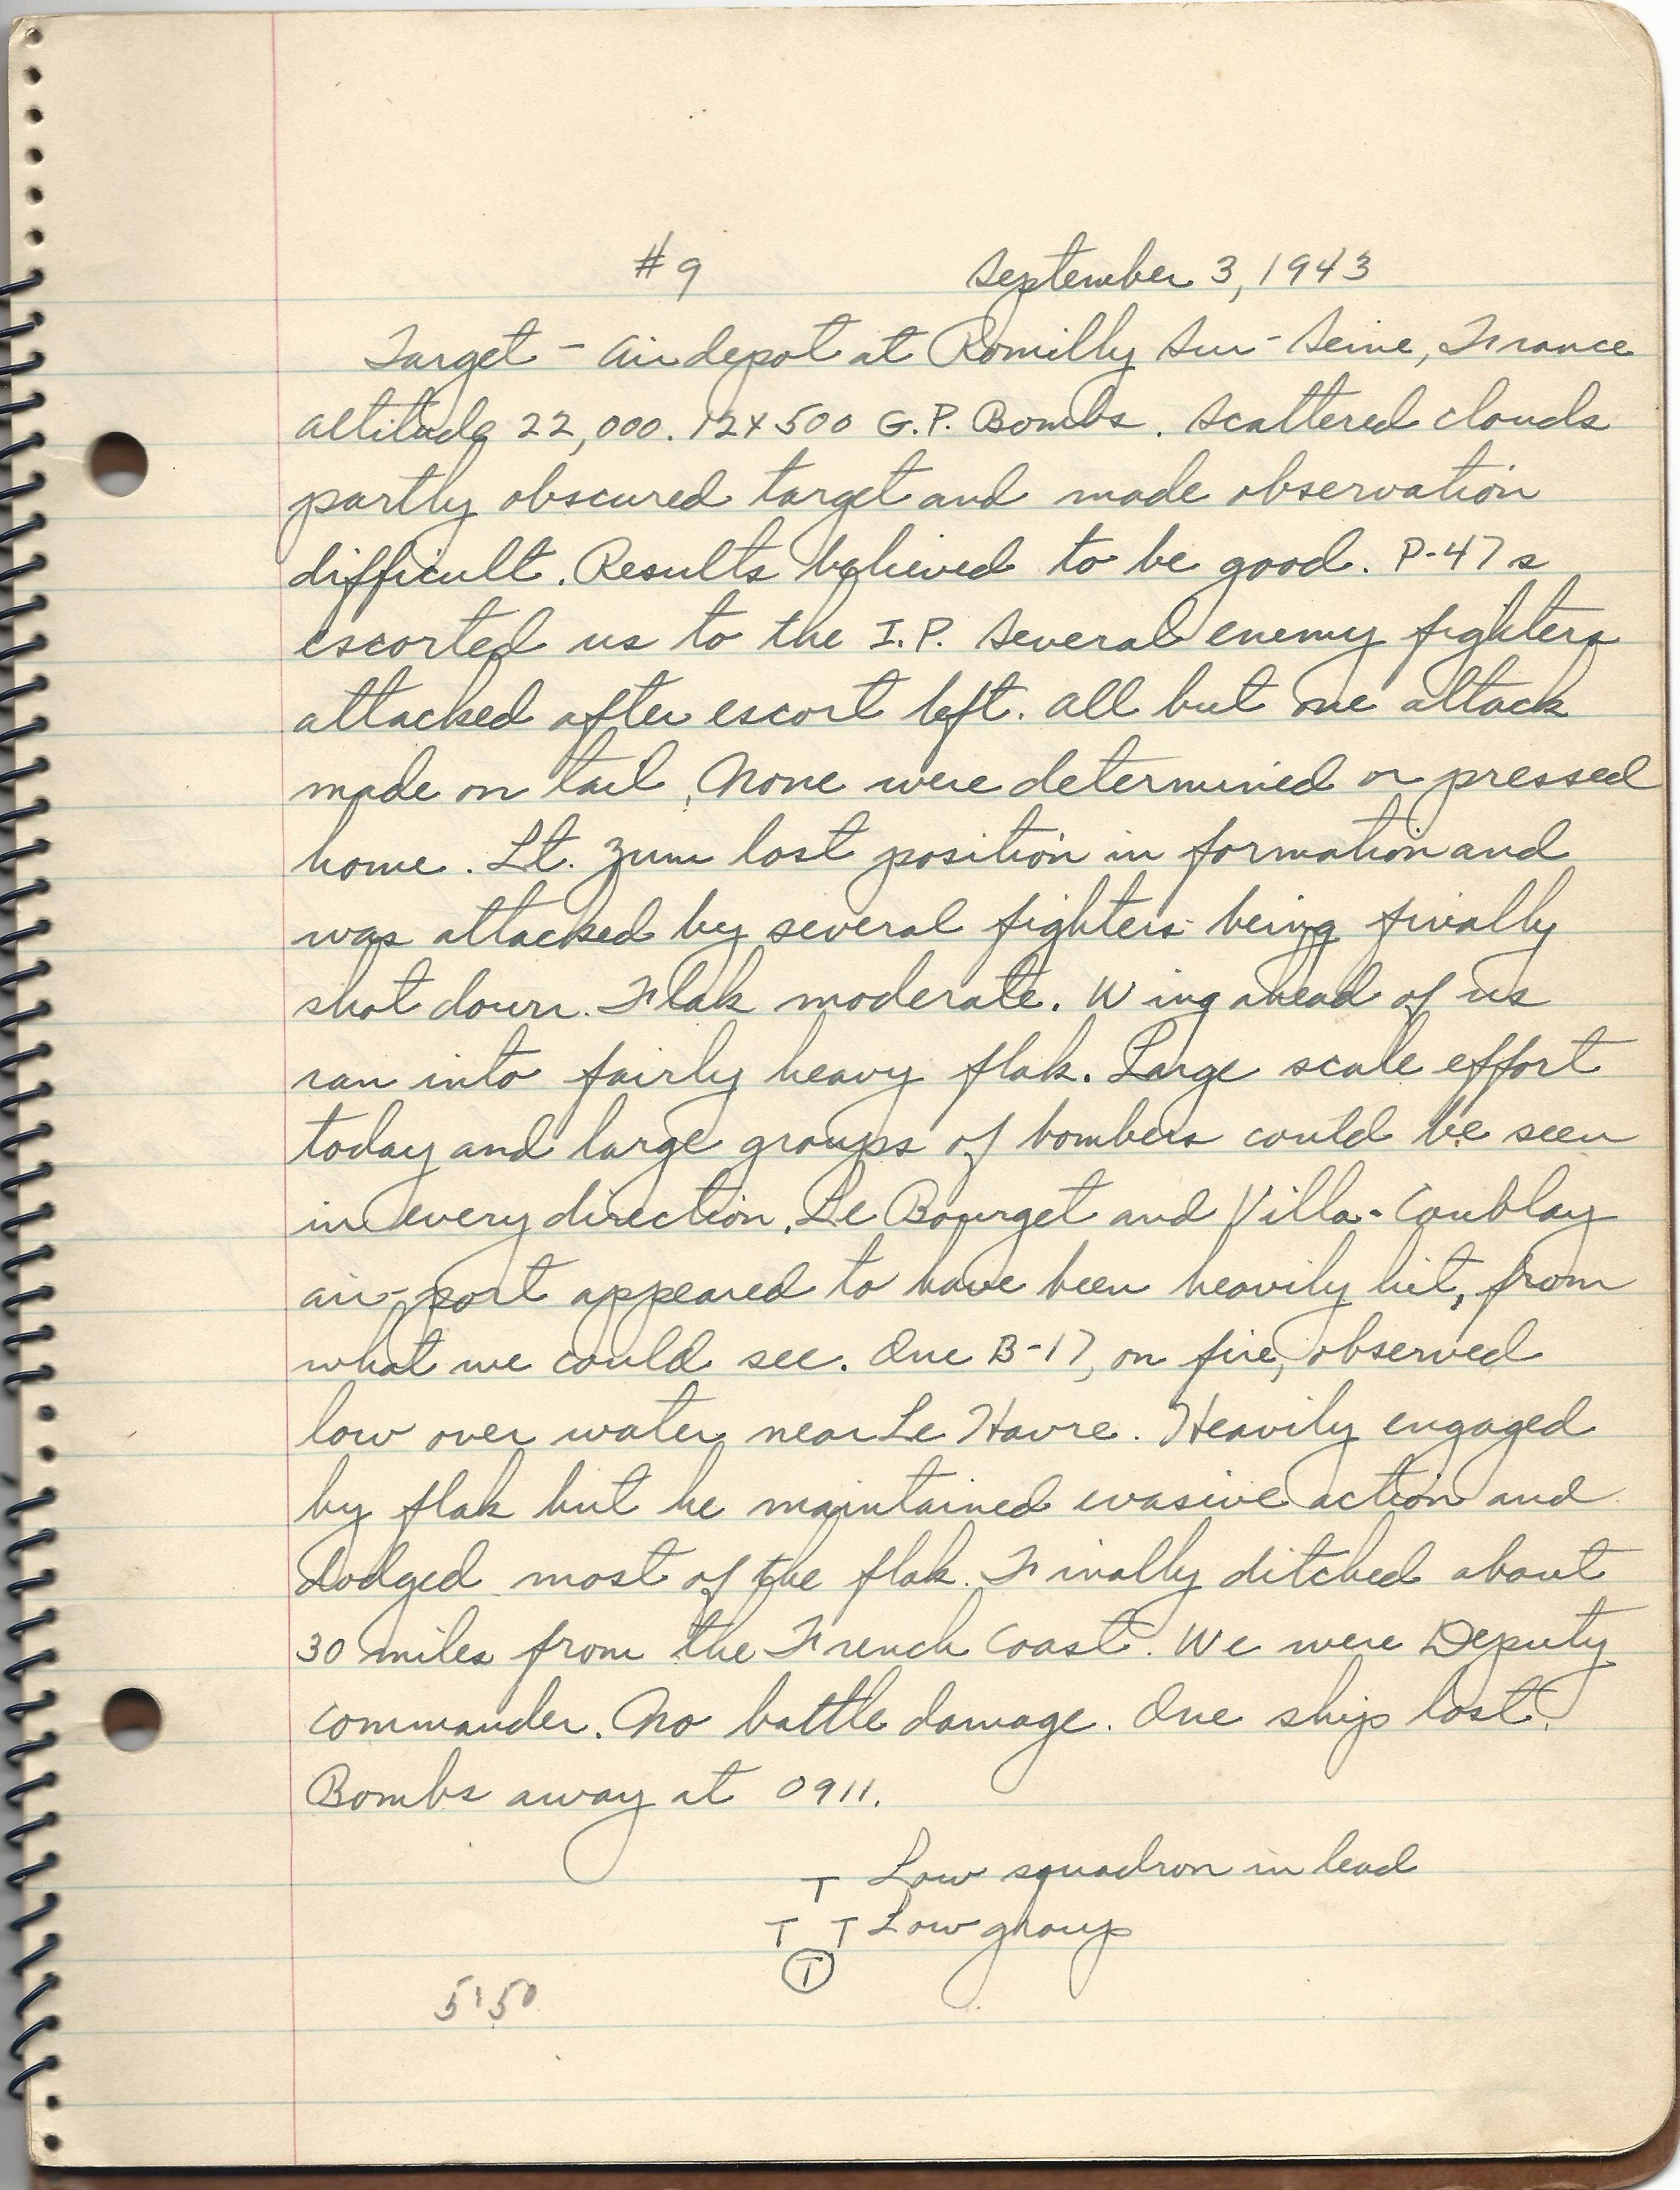 #9 September 3, 1943
Target - Air depot at Romilly Sur-Seine, France
altitude 22,000. 12x500 G.P. Bombs. Scattered clouds
partly obscured target and made observation
difficult. Results believed to be good. P-47s
escorted us to the I.P. Several enemy fighters
attacked after escort left. All but one attack
made on tail. None were determined or pressed
home. Lt. Zum lost position in formation and
was attacked by several fighters being finally
shot down. Flak moderate. Wing ahead of us
ran into fairly heavy flak. Large scale effort
today and large groups of bombers could be seen
in every direction. Le Bourget and Villa-Coublay
air-port appeared to have been heavily hit, from
what we could see. One B-17, on fire, observed
low over water near Le Havre. Heavily engaged
by flak but he maintained evasive action and
dodged most of the flak. Finally ditched about
30 miles from the French Coast. We were Deputy
commander. No battle damage. One ship lost.
Bombs away at 0911.
T Low squadron in lead
T T Low group
T
5'50